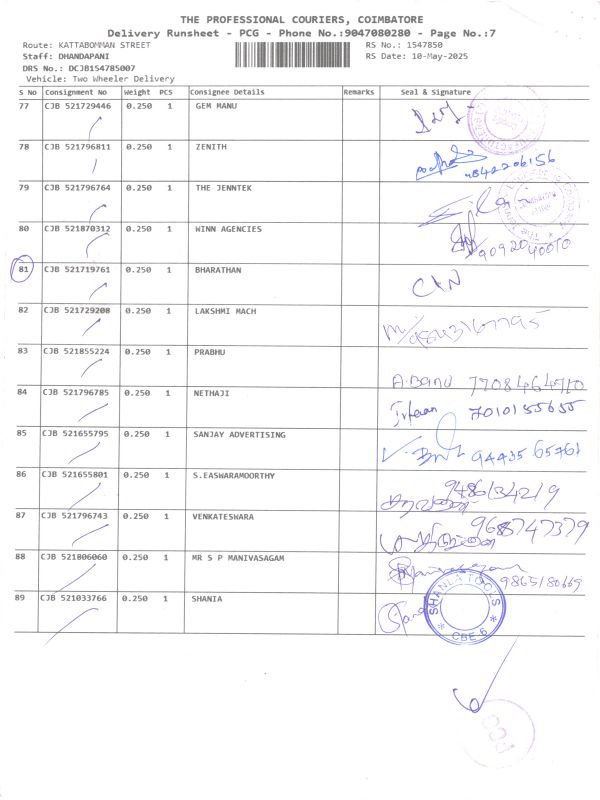 THE PROFESSIONAL COURIERS, COIMBATORE
Delivery Runsheet - PCG - Phone No.:9047080280 - Page No.:7
Route: KATTABOMMAN STREET RS No.: 1547850
Staff: DHANDAPANI RS Date: 10-May-2025
DRS No.: DCJB154785007
Vehicle: Two Wheeler Delivery
S No Consignment No Weight PCS Consignee Details Remarks Seal & Signature
77 CJB 521729446 0.250 1 GEM MANU
78 CJB 521796811 0.250 1 ZENITH
9842206156
79 CJB 521796764 0.250 1 THE JENNTEK
80 CJB 521870312 0.250 1 WINN AGENCIES
9092040010
81 CJB 521719761 0.250 1 BHARATHAN
82 CJB 521729208 0.250 1 LAKSHMI MACH
83 CJB 521855224 0.250 1 PRABHU
A.Banu 7708464710
84 CJB 521796785 0.250 1 NETHAJI
Irfaan 7010155655
85 CJB 521655795 0.250 1 SANJAY ADVERTISING
9443565761
86 CJB 521655801 0.250 1 S.EASWARAMOORTHY
87 CJB 521796743 0.250 1 VENKATESWARA
9688747379
88 CJB 521806060 0.250 1 MR S P MANIVASAGAM
9865180669
89 CJB 521033766 0.250 1 SHANIA
CBE-6